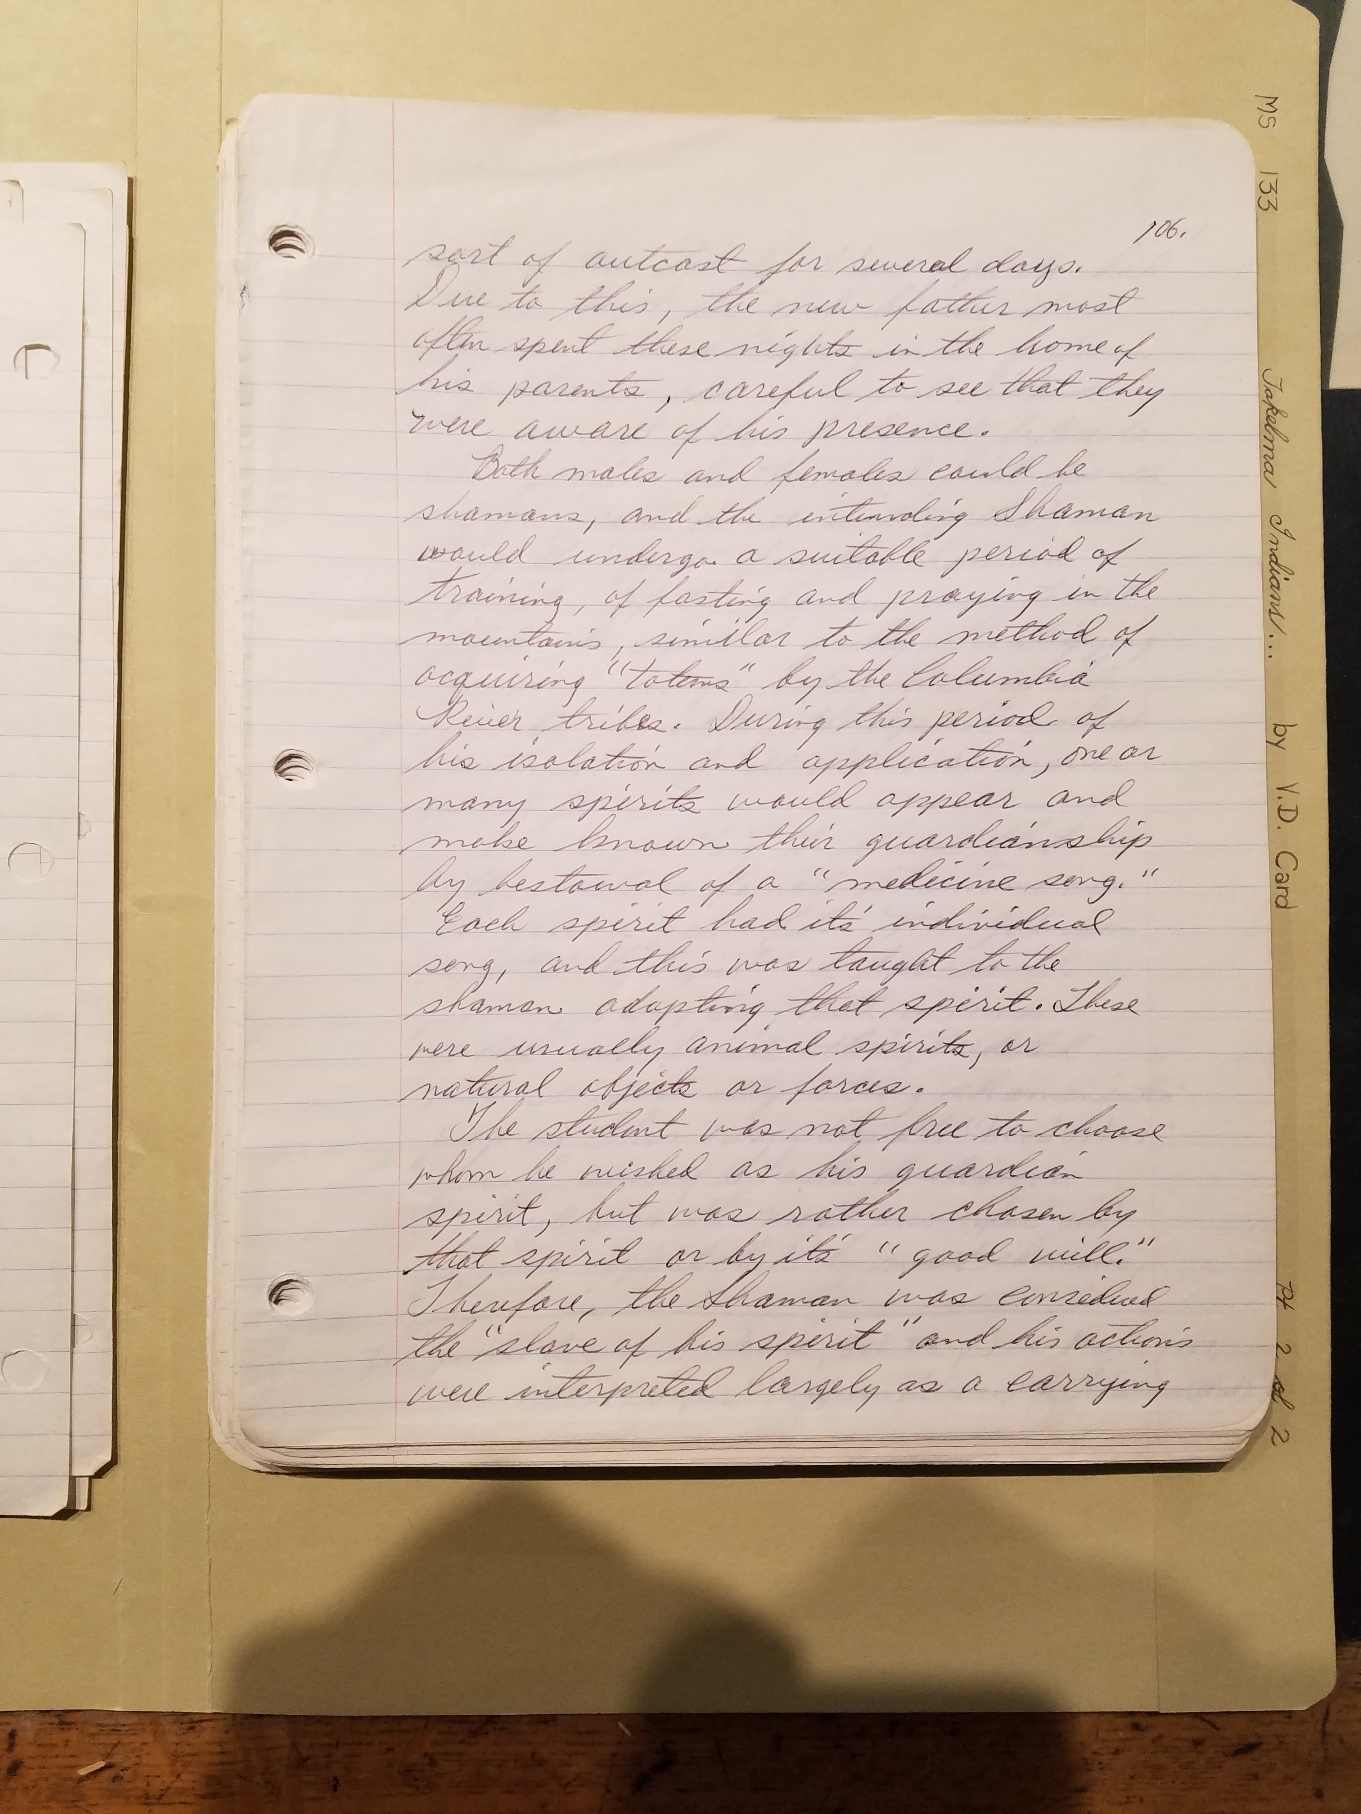 106.
sort of outcast for several days.
Due to this, the new father most
often spent these nights in the home of
his parents, careful to see that they
were aware of his presence.
Both males and females could be
shamans, and the intending Shaman
would undergo a suitable period of
training, of fasting and praying in the
mountains, similar to the method of
acquiring "totems" by the Columbia
River tribes. During this period of
his isolation and application, one or
many spirits would appear and
make known their guardianship
by bestowal of a "medicine song."
Each spirit had its' individual
song, and this was taught to the
shaman adopting that spirit. These
were usually animal spirits, or
natural objects or forces.
The student was not free to choose
whom he wished as his guardian
spirit, but was rather chosen by
that spirit or by it's "good will."
Therefore, the Shaman was considered
the "slave of his spirit" and his actions
were interpreted largely as a carrying
MS 133 Takelma Indians... by V.D. Card Pt 2 of 2